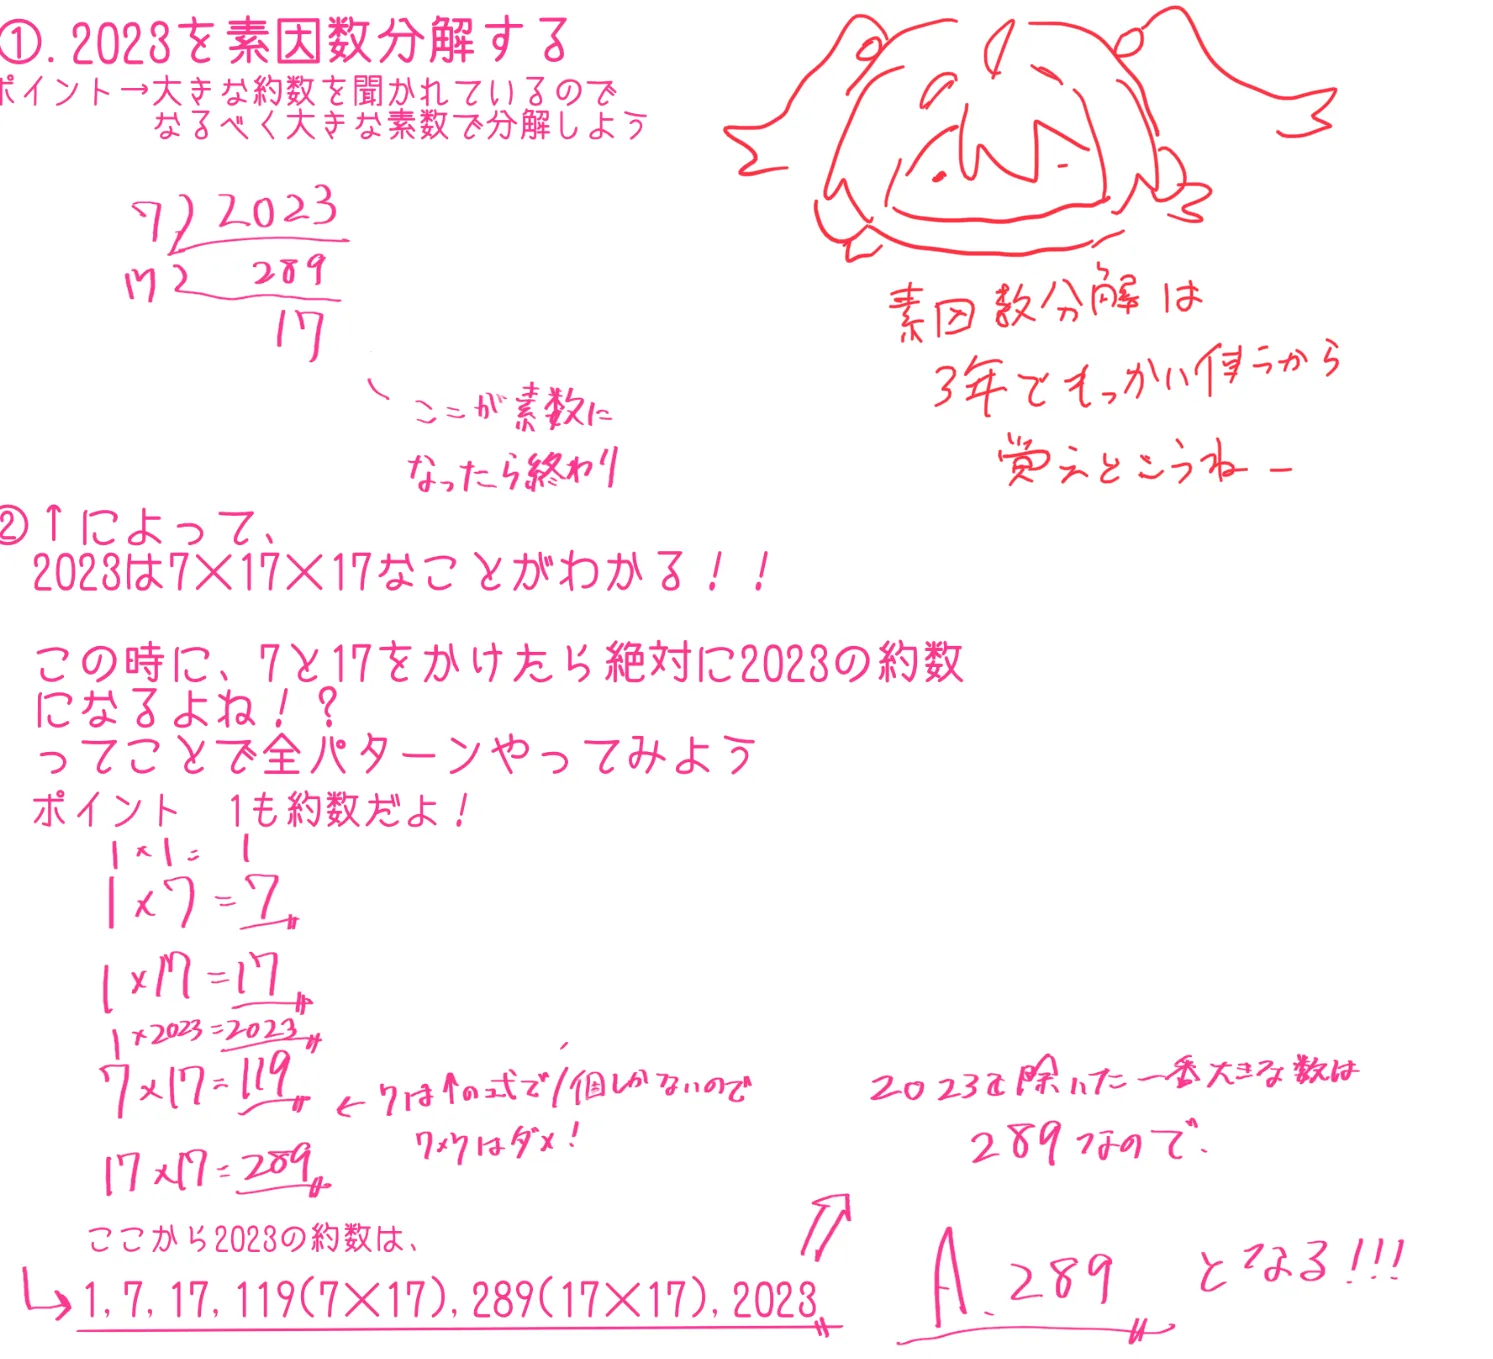 ①.2023を素因数分解する
ポイント→大きな約数を聞かれているので
なるべく大きな素数で分解しよう
7)2023
17)289
17
ここが素数に
なったら終わり
素因数分解は
3年でもっかい使うから
覚えとこうねー
②↑によって、
2023は7×17×17なことがわかる！！
この時に、7と17をかけたら絶対に2023の約数
になるよね！？
ってことで全パターンやってみよう
ポイント 1も約数だよ！
1×1=1
1×7=7
1×17=17
1×2023=2023
7×17=119
←7は↑の式で1個しかないので
7×7はダメ！
17×17=289
2023を除いた一番大きな数は
289なので、
ここから2023の約数は、
1,7,17,119(7×17),289(17×17),2023
A.289となる!!!